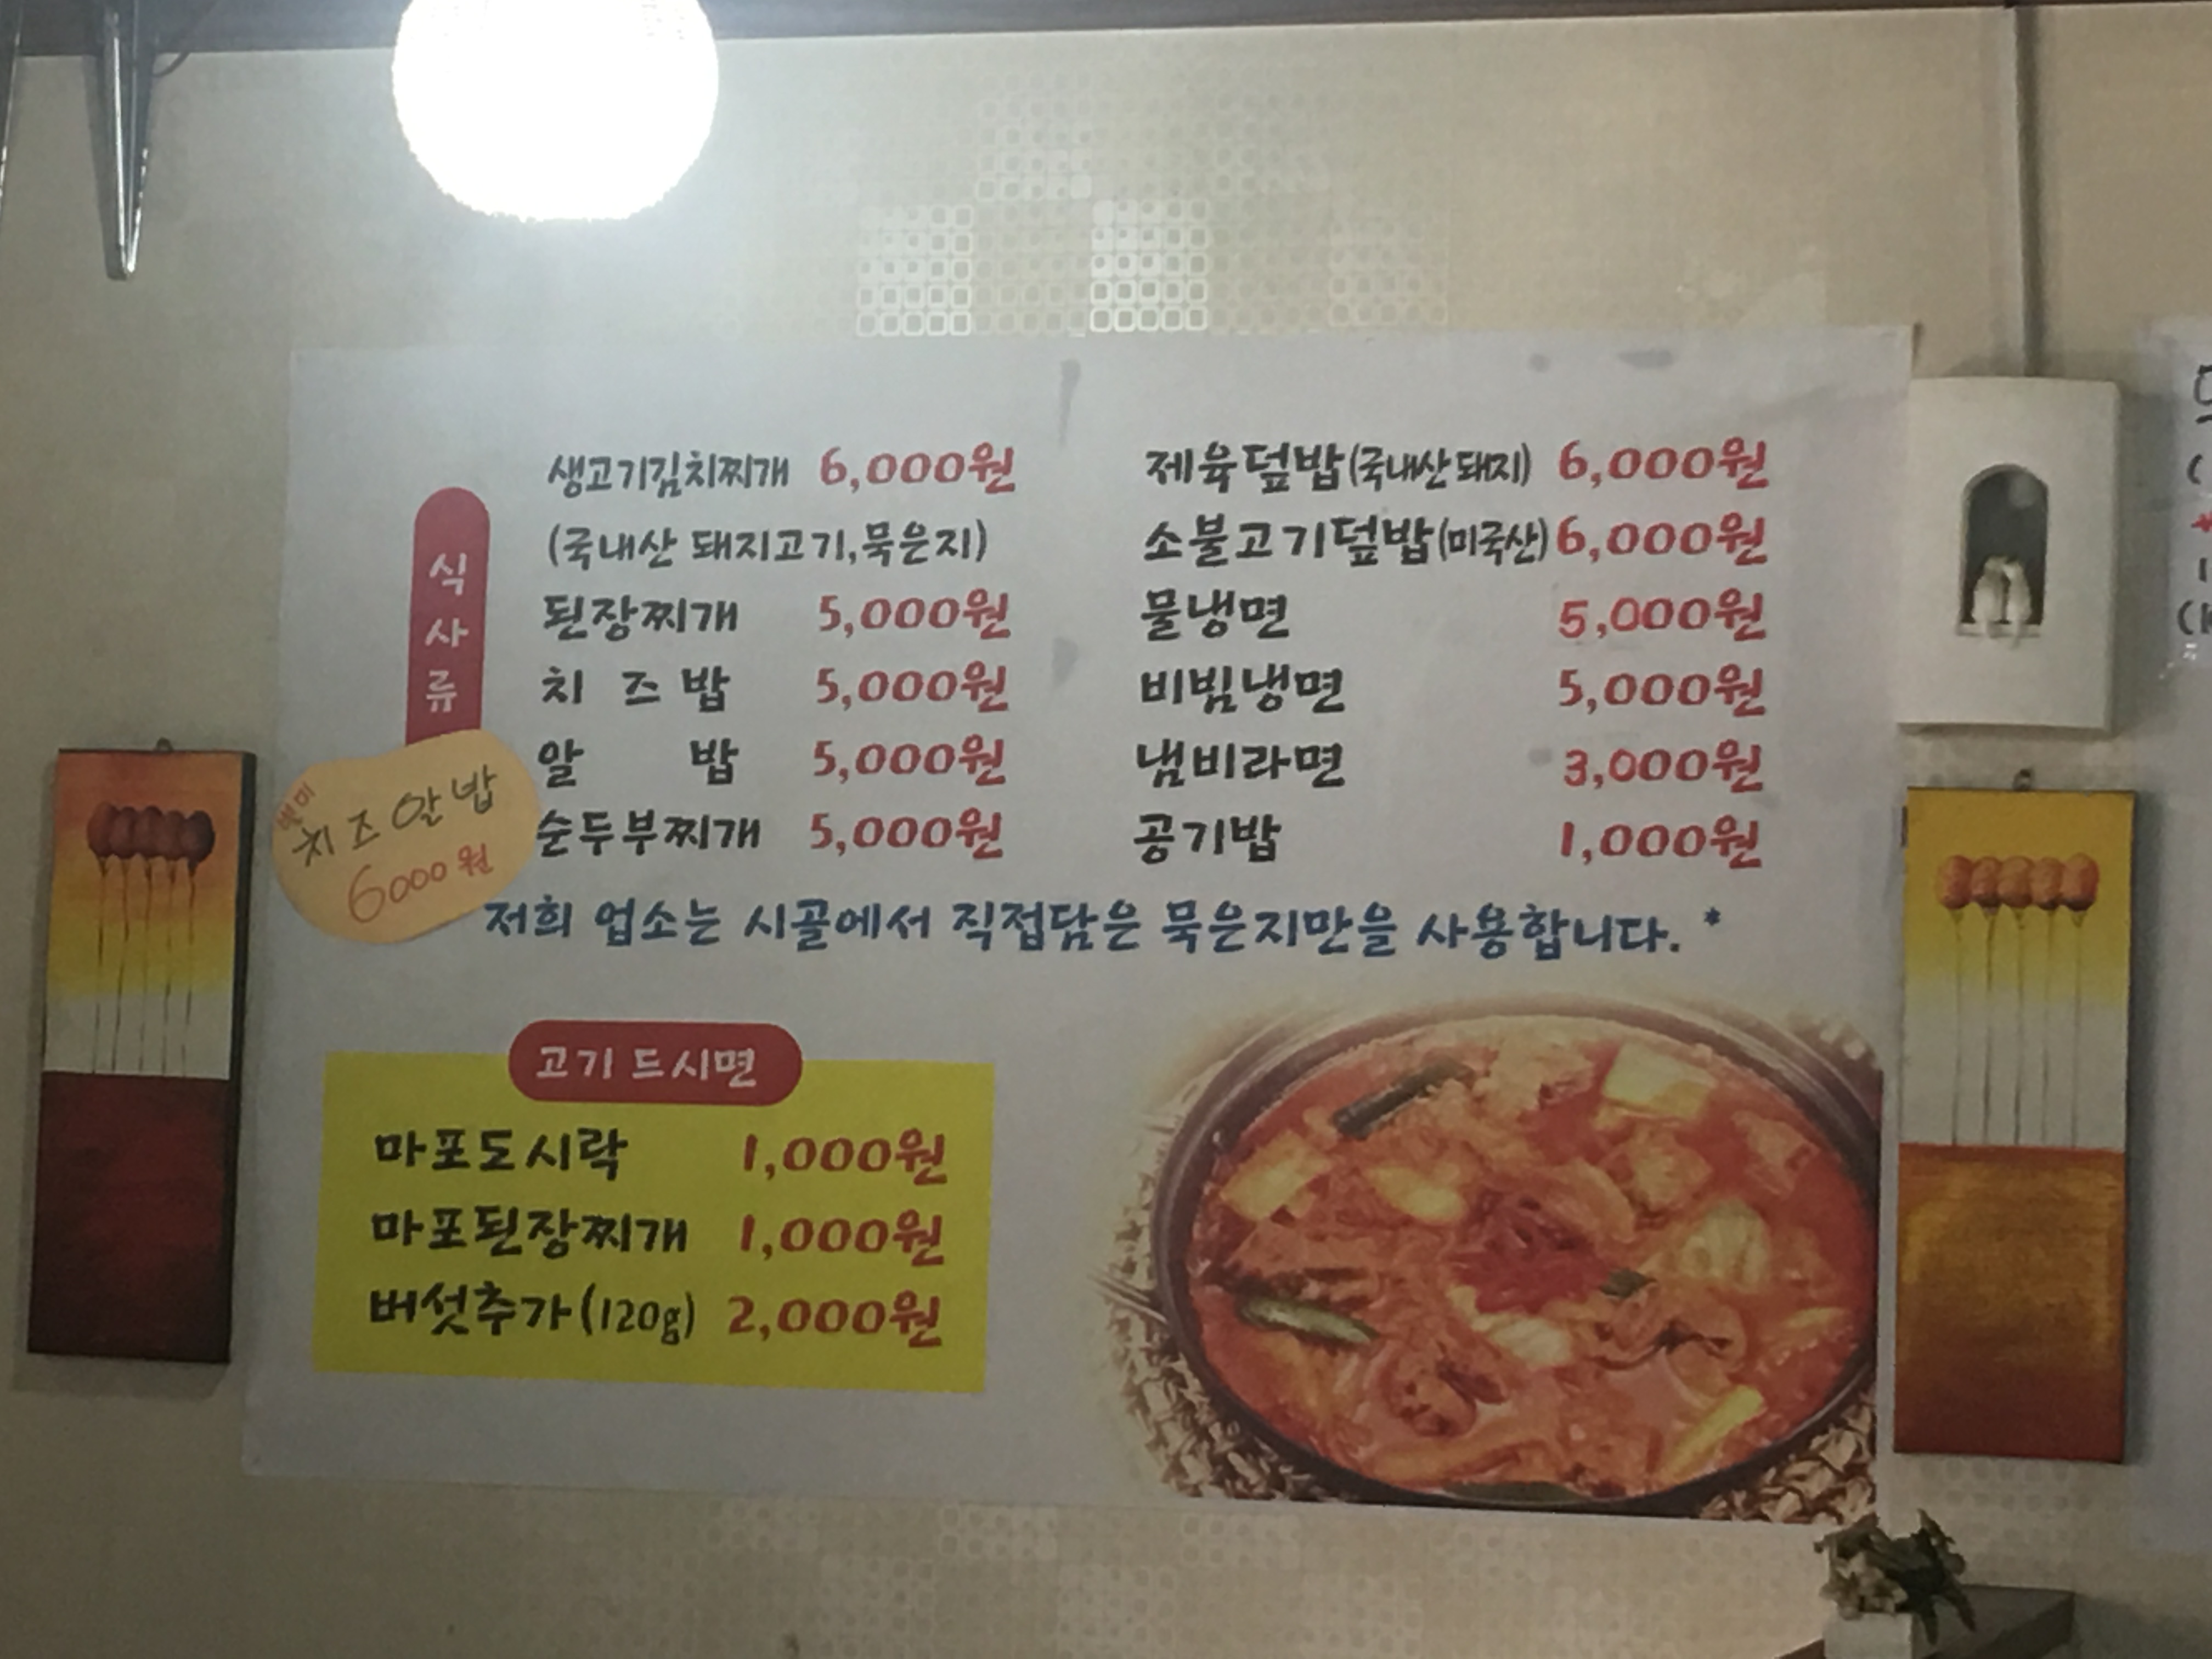 식사류
생고기김치찌개 6,000원
(국내산 돼지고기,묵은지)
된장찌개 5,000원
치즈밥 5,000원
알밥 5,000원
순두부찌개 5,000원
제육덮밥(국내산돼지) 6,000원
소불고기덮밥(미국산) 6,000원
물냉면 5,000원
비빔냉면 5,000원
냄비라면 3,000원
공기밥 1,000원
별미
치즈알밥
6000원
저희 업소는 시골에서 직접담은 묵은지만을 사용합니다. *
고기 드시면
마포도시락 1,000원
마포된장찌개 1,000원
버섯추가(120g) 2,000원